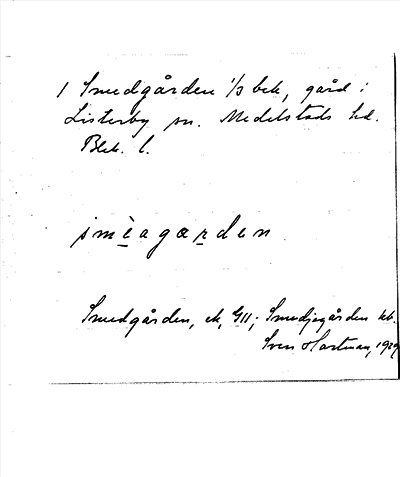 1 Smedgården 1/3 bek, gård i
Listerby sn. Medelstads hd.
Blek. l.
smèagarden
Smedgården, ek, G11; Smedjegården kb.
Sven Hartman, 1929